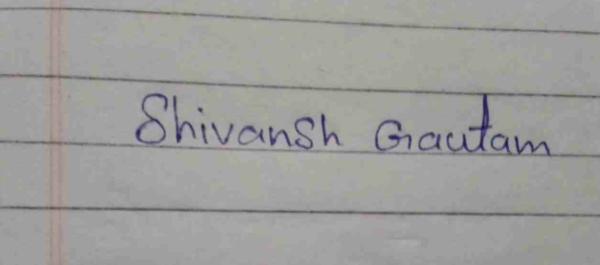 Shivansh Gautam